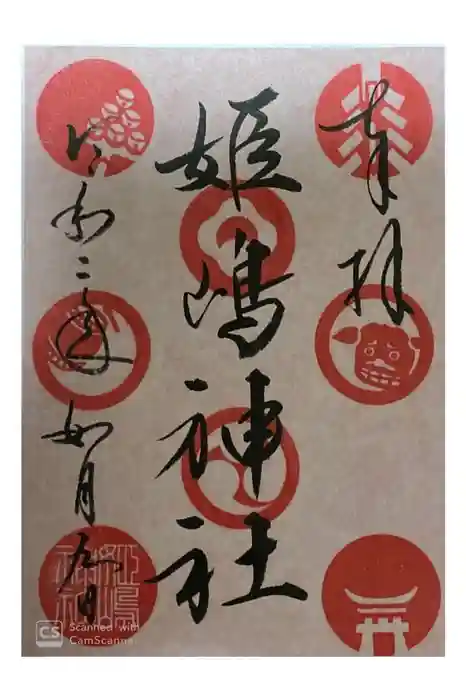 奉拝
姫嶋神社
令和二年如月九日
姫嶋神社
CS Scanned with
CamScanner